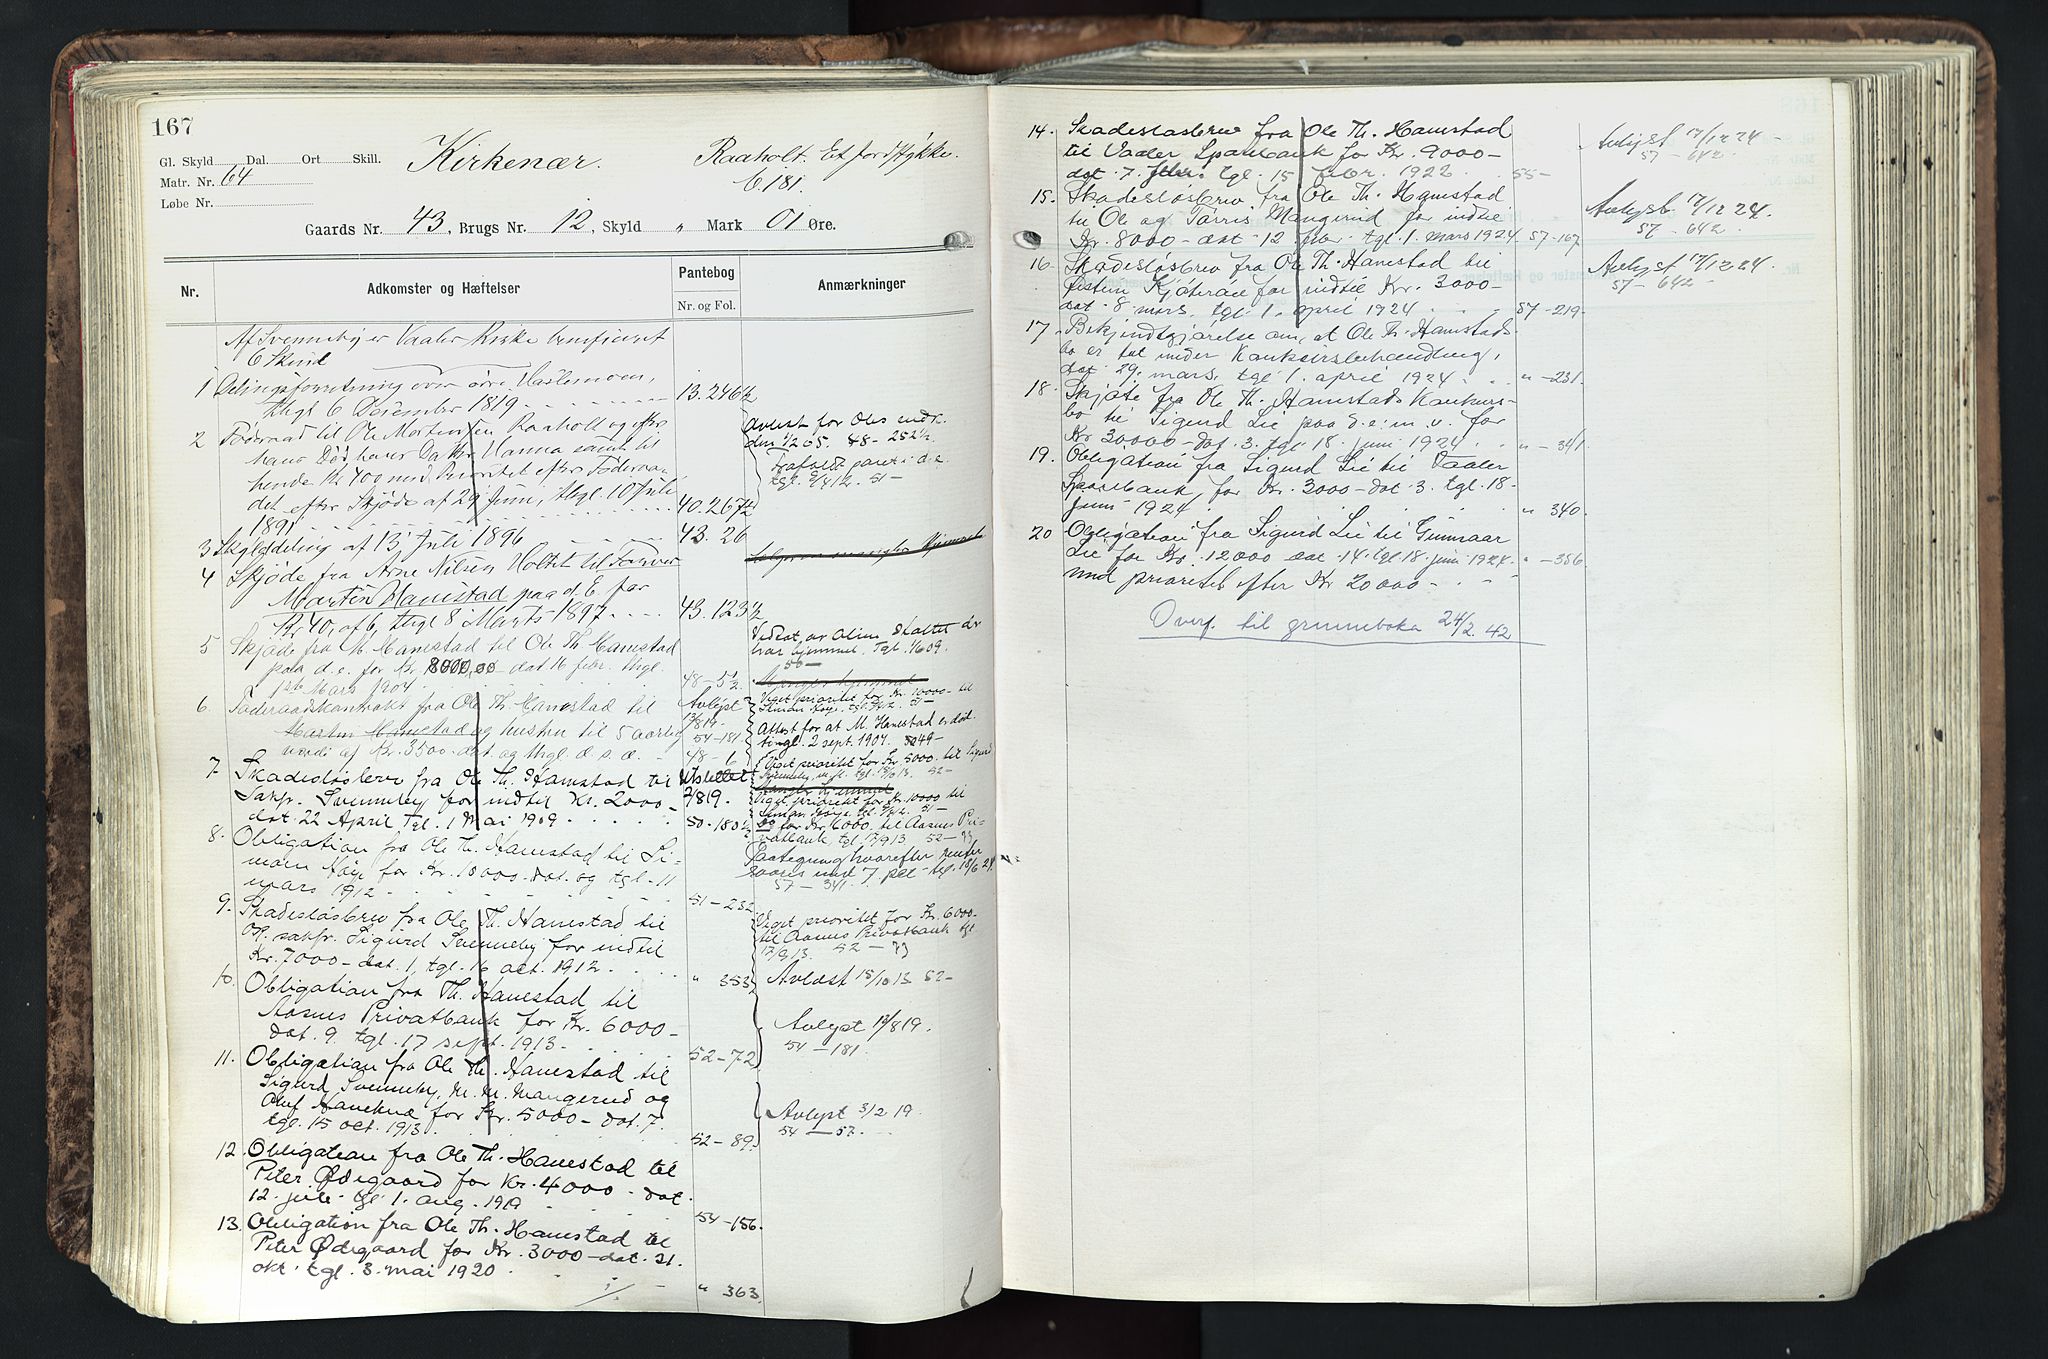 167
Gl. Skyld Dal. Ort Skill.
Matr. Nr. 64
Løbe Nr.
Kirkenær.
Raaholt. Et jordstykke.
Gaards Nr. 43, Brugs Nr. 12, Skyld " Mark 01 Øre.
Nr.
Adkomster og Hæftelser
Pantebog
Nr. og Fol.
Anmærkninger
Af Svenneby er Vaaler Kirke beneficeret
6 Skind
1 Delingsforretning over øvre Haslemoen,
thgl 6 December 1819 13. 246½
2 Føderaad til Ole Mortensen Raaholt og efter
hans Død haver Hanna samt til
hende Kr 400 med Prioritet efter Føderaa-
det efter Skjøde af 29 Juni, thgl 10 Juli
1891 40. 267½
Avlest for Oles vedk.
den 1/2 05. 48 - 252½
tgl. 51 -
3 Skylddeling af 13 Juli 1896 43. 26
4 Skjøde fra Arne Nilsen Holtet til
Martin Hanestad paa d. E. for
Kr 40, af 6, thgl 8 Marts 1897 43. 123½
5 Skjøde fra M Hanestad til Ole Th Hanestad
paa d. e. for Kr. 8000,00 dat 16 febr. thgl.
1ste Mars 1904 48 - 5½
har hjemmel. Tgl. 1/6 09.
50 -
6. Føderaadskontrakt fra Ole Th. Hanestad til
Martin Hanestad og hustru til 5 aarlig
værdi af Kr. 3500. dat. og thgl. d. s. d. 48 - 6
Avlyst
12/8 19.
54 - 181
Veget prioritet for Kr. 10000 - til
Attest for at M. Hanestad er død.
tingl. 2 sept. 1907. 49 -
Veget prioritet for Kr. 5000. til Sigurd
Svenneby m. fl. tgl. 15/10 13. 52 -
7. Skadesløsbrev fra Ole Th. Hanestad til
Sakfr. Svenneby for indtil Kr. 2000 -
dat. 22 April tgl. 1 Mai 1909 50 - 180½
Utslettet
2/8 19.
Mangler hjemmel
Veget prioritet for Kr. 10000 til
Do for Kr 6000. til Aasnes Pri-
vatbank, tgl. 17/9 13 52 - 73
8. Obligation fra Ole Th. Hanestad til Si-
mon Høie for Kr. 10000. dat. og tgl. 11
mars 1912 51 - 232
Paategning hvorefter renter
svares med 7 pct - tgl. 18/6 24.
57 - 341.
9. Skadesløsbrev fra Ole Th. Hanestad til
Or. sakfr. Sigurd Svenneby for indtil
Kr. 7000 - dat. 1, tgl. 16 oct. 1912 " 353
Veget prioritet for Kr. 6000 -
til Aasnes Privatbank tgl.
17/9 13. 52 - 73
Avlæst 15/10 13 52 -
10. Obligation fra Th. Hanestad til
Aasnes Privatbank for Kr. 6000 -
dat. 9. tgl. 17 sept. 1913 52 - 72
Avlyst 12/8 19.
54 - 181.
11. Obligation fra Ole Th. Hanestad til
Sigurd Svenneby, M. M. Mangerud og
Oluf Haneknæ for Kr. 5000 - dat. 7.
tgl. 15 oct. 1913. 52 - 89.
Avlyst 3/2 19.
54 - 57.
12. Obligation fra Ole Th. Hanestad til
Peter Ødegaard for Kr. 4000 - dat.
12. juli tgl. 1. aug. 1919 54 - 156.
13. Obligation fra Ole Th. Hanestad til
Peter Ødegaard for Kr. 3000 - dat. 31.
okt. tgl. 3. mai 1920 " 363.
14. Skadesløsbrev fra Ole Th. Hanestad
til Vaaler Sparebank for Kr. 9000 -
dat. 7. febr. tgl. 15 febr. 1922 55 -
Avlyst 17/12 24 -
57 - 642 -
15. Skadesløsbrev fra Ole Th. Hanestad
til Ole og Tørris Mangerud for indtil
Kr. 8000 - dat 12 febr. tgl. 1. mars 1924. 57 - 167
Avlyst 17/12 24.
57 - 642 -
16. Skadesløsbrev fra Ole Th. Hanestad til
Østen Kjøteraie for indtil Kr. 3000 -
dat. 8. mars, tgl. 1. april 1924 57 - 219.
Avlyst 17/12 24.
57 - 642 -
17. Bekjendtgjørelse om, at Ole Th. Hanestads
bo er tat under Konkursbehandling,
dat. 29. mars, tgl 1. april 1924 " - 231.
18. Skjøte fra Ole Th. Hanestads Konkurs-
bo til Sigurd Lie paa d. e. m. v. for
Kr 30000 - dat. 3. tgl. 18. juni 1924 " - 341.
19. Obligation fra Sigurd Lie til Vaaler
Sparebank for Kr. 3000 - dat 3. tgl. 18.
juni 1924 " 340.
20 Obligation fra Sigurd Lie til Gunnar
Lie for Kr. 12000 dat. 14. tgl. 18. juni 1924. " - 356
med prioritet efter Kr 20000 -
Overf. til grunnboka 24/2. 42